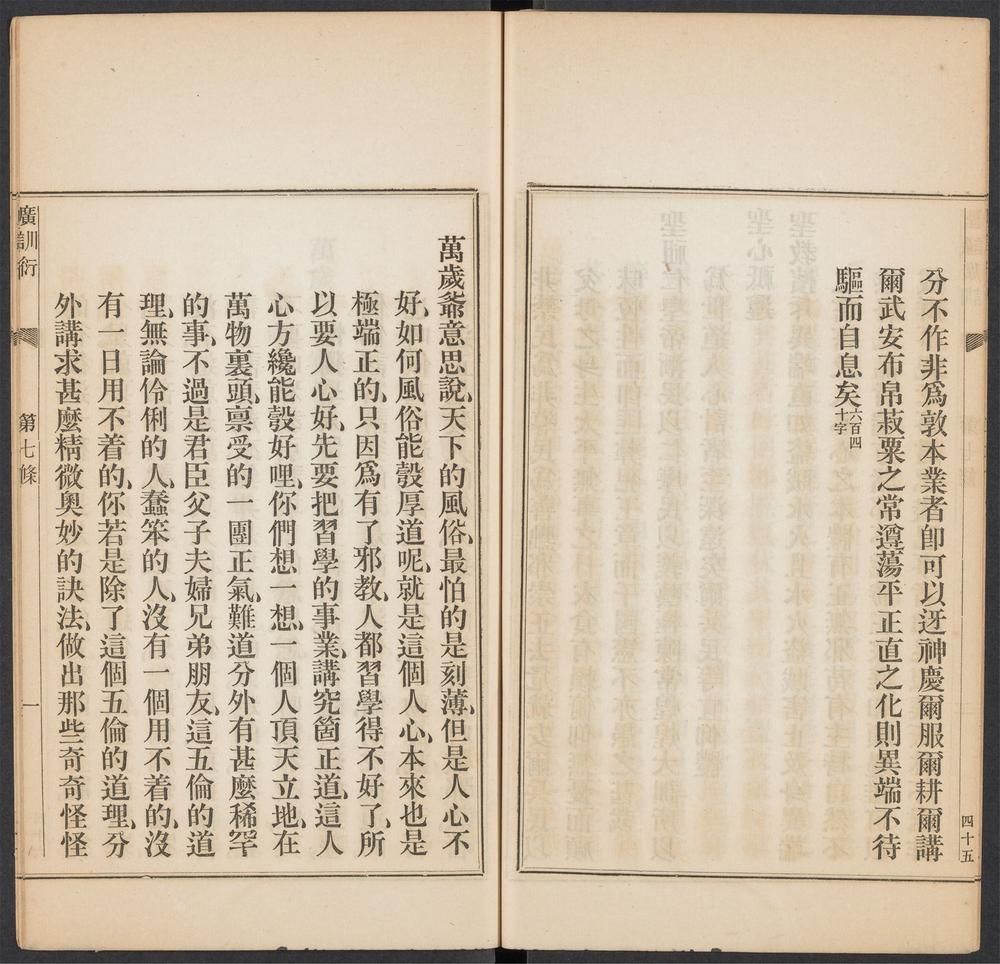 四十五
分不作非爲敦本業者卽可以迓神慶爾服爾耕爾講
爾武安布帛菽粟之常遵蕩平正直之化則異端不待
驅而自息矣六百四十字
萬歲爺意思說、天下的風俗、最怕的是刻薄、但是人心不
好、如何風俗能彀厚道呢、就是這個人心、本來也是
極端正的、只因爲有了邪教、人都習學得不好了、所
以要人心好、先要把習學的事業、講究箇正道、這人
心方纔能彀好哩、你們想一想、一個人頂天立地、在
萬物裏頭、禀受的一團正氣、難道分外有甚麽稀罕
的事、不過是君臣父子夫婦兄弟朋友、這五倫的道
理、無論伶俐的人、蠢笨的人、沒有一個用不着的、沒
有一日用不着的、你若是除了這個五倫的道理、分
外講求甚麽精微奥妙的訣法、做出那些奇奇怪怪
廣訓衍
第七條
一